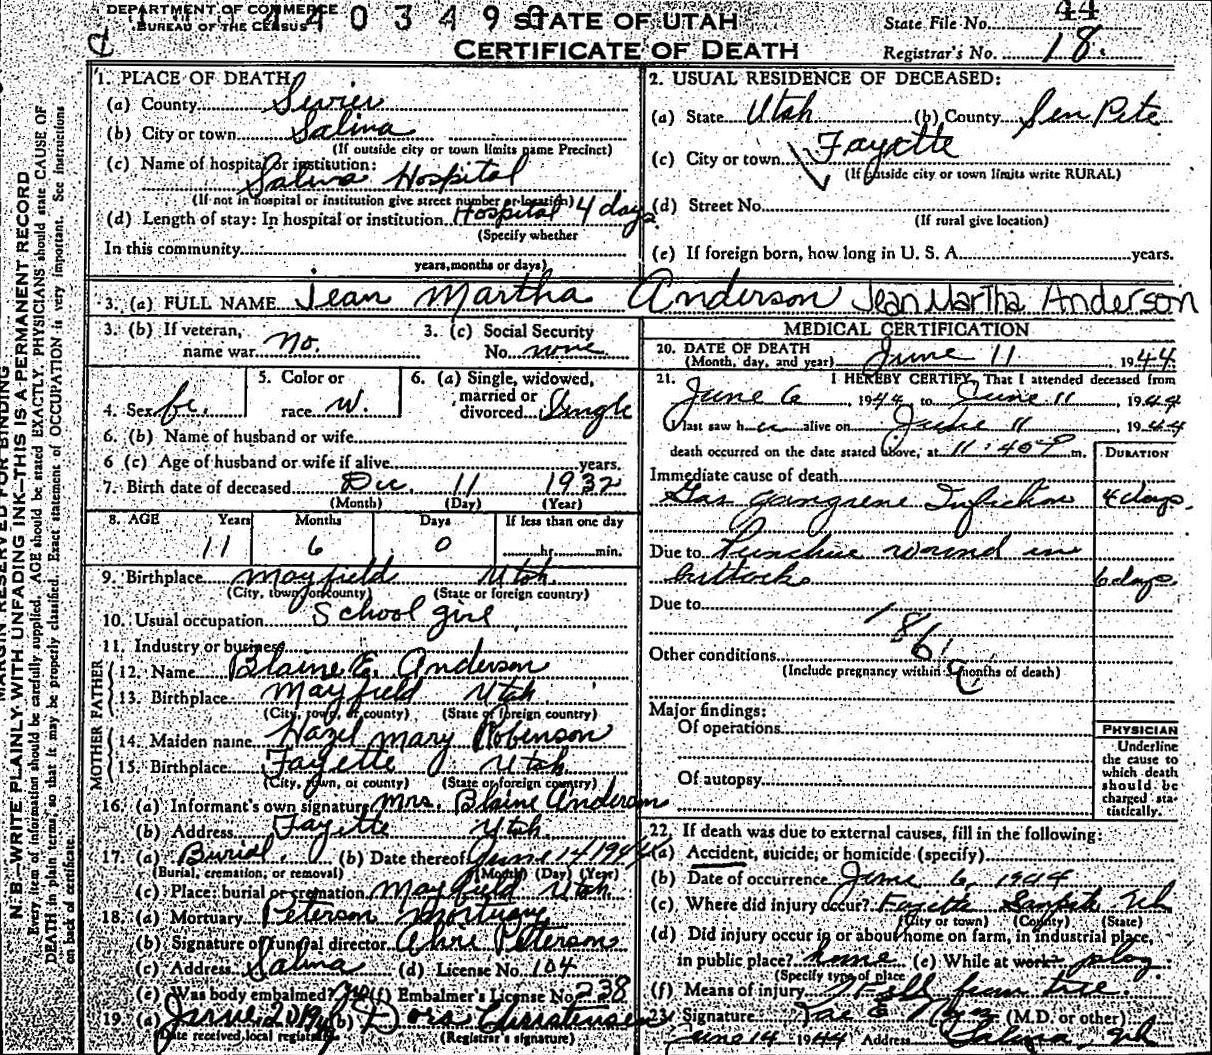 DEPARTMENT OF COMMERCE
BUREAU OF THE CENSUS
STATE OF UTAH
CERTIFICATE OF DEATH
State File No. 44
Registrar's No. 18.
MARGIN RESERVED FOR BINDING
N. B.—WRITE PLAINLY WITH UNFADING INK—THIS IS A PERMANENT RECORD
Every item of information should be carefully supplied. AGE should be stated EXACTLY. PHYSICIANS should state CAUSE OF
DEATH in plain terms, so that it may be properly classified. Exact statement of OCCUPATION is very important. See instructions
on back of certificate.
1. PLACE OF DEATH
(a) County Sevier
(b) City or town Salina
(If outside city or town limits name Precinct)
(c) Name of hospital or institution:
Salina Hospital
(If not in hospital or institution give street number or location)
(d) Length of stay: In hospital or institution Hospital 4 days
(Specify whether
In this community
years, months or days)
2. USUAL RESIDENCE OF DECEASED:
(a) State Utah (b) County Sen Pete
(c) City or town Fayette
(If outside city or town limits write RURAL)
(d) Street No.
(If rural give location)
(e) If foreign born, how long in U. S. A. years.
3. (a) FULL NAME Jean Martha Anderson Jean Martha Anderson
3. (b) If veteran, name war No.
3. (c) Social Security No. none
4. Sex fe.
5. Color or race W.
6. (a) Single, widowed, married or divorced Single
6. (b) Name of husband or wife
6 (c) Age of husband or wife if alive years.
7. Birth date of deceased Dec. 11 1932
(Month) (Day) (Year)
8. AGE Years Months Days If less than one day
11 6 0 hr. min.
9. Birthplace Mayfield Utah
(City, town or county) (State or foreign country)
10. Usual occupation School girl
11. Industry or business
FATHER
12. Name Blaine E. Anderson
13. Birthplace Mayfield Utah
(City, town, or county) (State of foreign country)
MOTHER
14. Maiden name Hazel Mary Robinson
15. Birthplace Fayette Utah
(City, town, or county) (State or foreign country)
16. (a) Informant's own signature Mrs. Blaine Anderson
(b) Address Fayette Utah
17. (a) Burial (b) Date thereof June 14 1944
(Burial, cremation, or removal) (Month) (Day) (Year)
(c) Place: burial or cremation Mayfield Utah
18. (a) Mortuary Peterson Mortuary
(b) Signature of funeral director Peterson
(c) Address Salina (d) License No. 104
(e) Was body embalmed? (f) Embalmer's License No. 238
19. (a) June 20 (b) Dora Christensen
(Date received local registrar) (Registrar's signature)
MEDICAL CERTIFICATION
20. DATE OF DEATH
(Month, day, and year) June 11 1944
21. I HEREBY CERTIFY, That I attended deceased from
June 6, 1944, to June 11, 1944
I last saw h er alive on June 11 1944
death occurred on the date stated above, at 11:40 P m.
DURATION
Immediate cause of death
Gas gangrene Infection 4 days.
Due to Puncture wound in
buttocks 6 days
Due to
186
Other conditions
(Include pregnancy within 3 months of death)
Major findings:
Of operations
Of autopsy
PHYSICIAN
Underline
the cause to
which death
should be
charged sta-
tistically.
22. If death was due to external causes, fill in the following:
(a) Accident, suicide, or homicide (specify)
(b) Date of occurrence June 6, 1944
(c) Where did injury occur? Fayette Sanpete Utah
(City or town) (County) (State)
(d) Did injury occur in or about home on farm, in industrial place,
in public place? home (e) While at work? play
(Specify type of place
(f) Means of injury Fell from tree
23. Signature Rae E. (M.D. or other)
June 14 1944 Address Salina, Utah